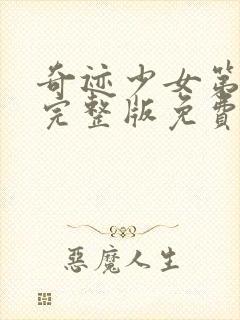 奇迹少女第
完整版免費
惡魔人生